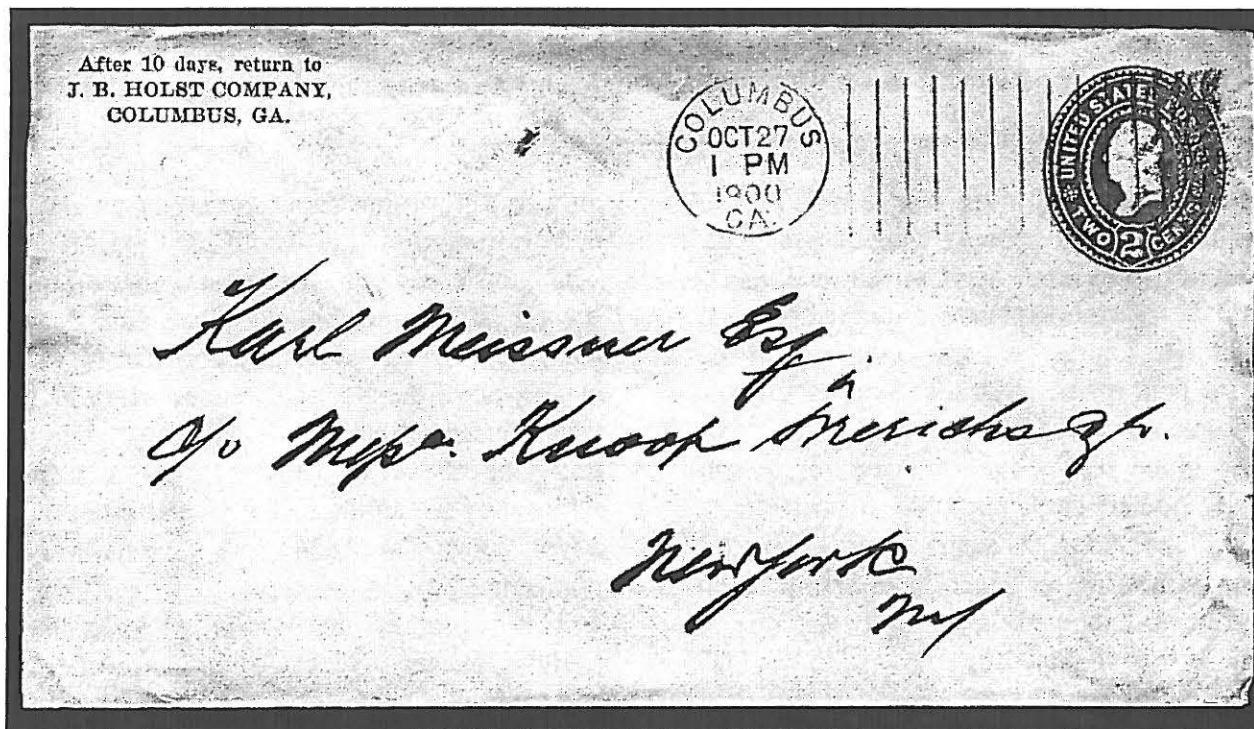 After 10 days, return to
J. B. HOLST COMPANY,
COLUMBUS, GA.
COLUMBUS
OCT 27
1 PM
1900
GA.
UNITED STATES
TWO 2 CENTS
Karl Meissner Esq
c/o Messrs. Knoop
New York
NY